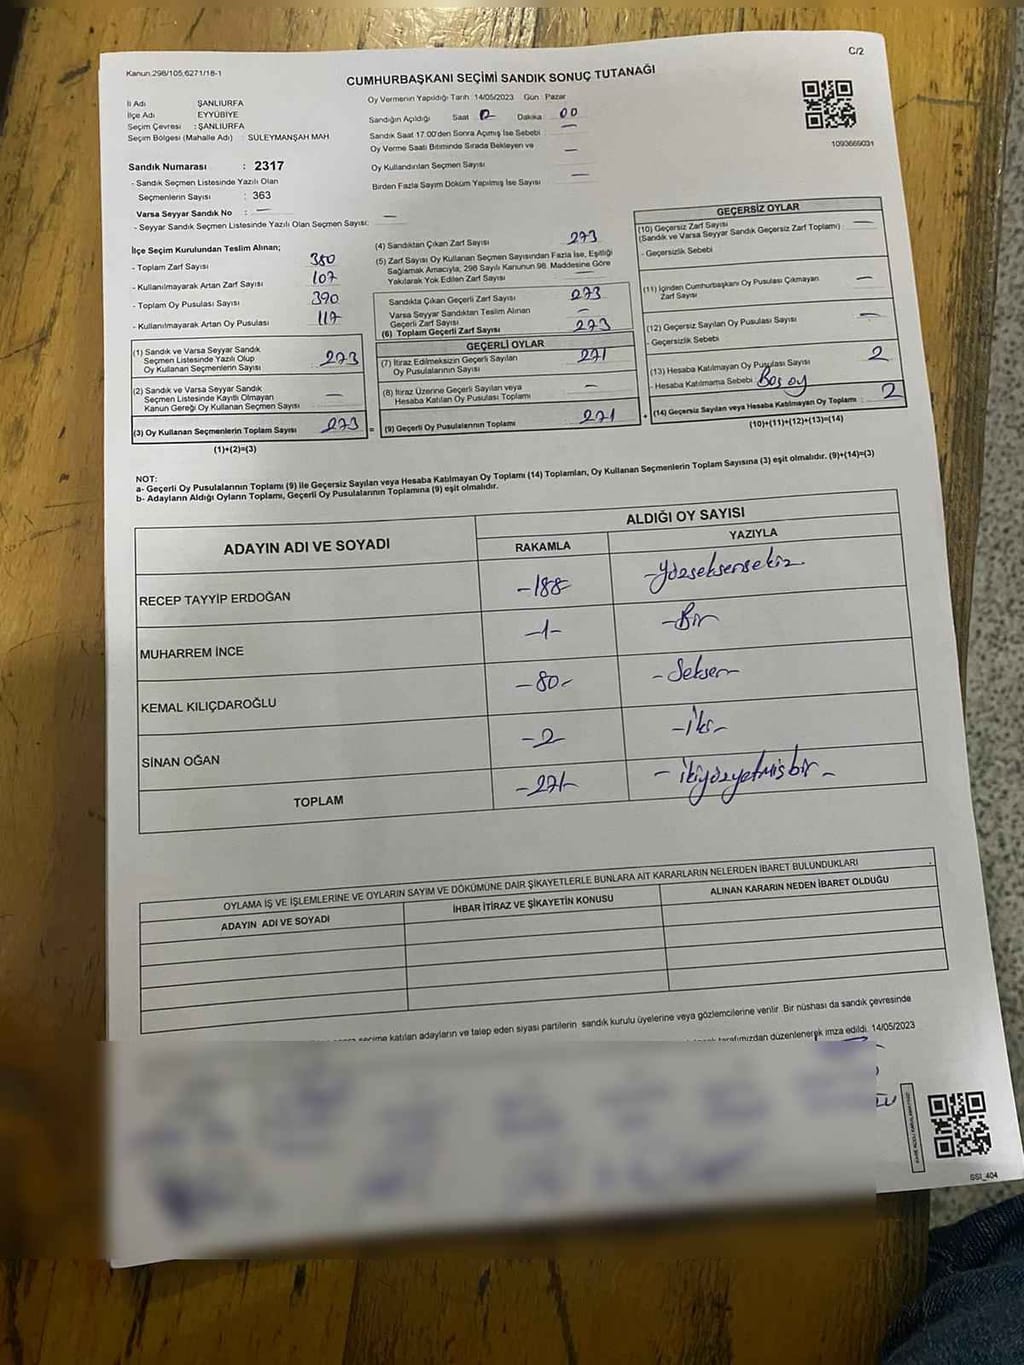 Kanun.298/105,6271/18-1
C/2
CUMHURBAŞKANI SEÇİMİ SANDIK SONUÇ TUTANAĞI
İl Adı ŞANLIURFA
İlçe Adı EYYÜBİYE
Seçim Çevresi : ŞANLIURFA
Seçim Bölgesi (Mahalle Adı) : SÜLEYMANŞAH MAH.
Sandık Numarası : 2317
- Sandık Seçmen Listesinde Yazılı Olan
Seçmenlerin Sayısı : 363
Varsa Seyyar Sandık No : —
- Seyyar Sandık Seçmen Listesinde Yazılı Olan Seçmen Sayısı: —
Oy Vermenin Yapıldığı Tarih :14/05/2023 Gün : Pazar
Sandığın Açıldığı Saat Dakika : 00
Sandık Saat 17.00'den Sonra Açımış İse Sebebi : —
Oy Verme Saati Bitiminde Sırada Bekleyen ve
Oy Kullandırılan Seçmen Sayısı —
Birden Fazla Sayım Döküm Yapılmış İse Sayısı —
1093669031
İlçe Seçim Kurulundan Teslim Alınan;
- Toplam Zarf Sayısı 380
- Kullanılmayarak Artan Zarf Sayısı 107
- Toplam Oy Pusulası Sayısı 390
- Kullanılmayarak Artan Oy Pusulası 117
(1) Sandık ve Varsa Seyyar Sandık
Seçmen Listesinde Yazılı Olup
Oy Kullanan Seçmenlerin Sayısı 273
(2) Sandık ve Varsa Seyyar Sandık
Seçmen Listesinde Kayıtlı Olmayan
Kanun Gereği Oy Kullanan Seçmen Sayısı —
(3) Oy Kullanan Seçmenlerin Toplam Sayısı 273 =
(1)+(2)=(3)
(4) Sandıktan Çıkan Zarf Sayısı 273
(5) Zarf Sayısı Oy Kullanan Seçmen Sayısından Fazla İse, Eşitliği
Sağlamak Amacıyla, 298 Sayılı Kanunun 98. Maddesine Göre
Yakılarak Yok Edilen Zarf Sayısı —
Sandıkta Çıkan Geçerli Zarf Sayısı 273
Varsa Seyyar Sandıktan Teslim Alınan
Geçerli Zarf Sayısı —
(6) Toplam Geçerli Zarf Sayısı 273
GEÇERLİ OYLAR
(7) İtiraz Edilmeksizin Geçerli Sayılan
Oy Pusulalarının Sayısı 271
(8) İtiraz Üzerine Geçerli Sayılan veya
Hesaba Katılan Oy Pusulası Toplamı —
(9) Geçerli Oy Pusulalarının Toplamı 271 +
GEÇERSİZ OYLAR
(10) Geçersiz Zarf Sayısı
(Sandık ve Varsa Seyyar Sandık Geçersiz Zarf Toplamı) —
- Geçersizlik Sebebi
(11) İçinden Cumhurbaşkanı Oy Pusulası Çıkmayan
Zarf Sayısı —
(12) Geçersiz Sayılan Oy Pusulası Sayısı —
- Geçersizlik Sebebi
(13) Hesaba Katılmayan Oy Pusulası Sayısı 2
- Hesaba Katılmama Sebebi : Boş oy
(14) Geçersiz Sayılan veya Hesaba Katılmayan Oy Toplamı : 2
(10)+(11)+(12)+(13)=(14)
NOT:
a- Geçerli Oy Pusulalarının Toplamı (9) ile Geçersiz Sayılan veya Hesaba Katılmayan Oy Toplamı (14) Toplamları, Oy Kullanan Seçmenlerin Toplam Sayısına (3) eşit olmalıdır. (9)+(14)=(3)
b- Adayların Aldığı Oyların Toplamı, Geçerli Oy Pusulalarının Toplamına (9) eşit olmalıdır.
ADAYIN ADI VE SOYADI
ALDIĞI OY SAYISI
RAKAMLA YAZIYLA
RECEP TAYYİP ERDOĞAN -188- -Yüzseksensekiz
MUHARREM İNCE -1- -Bir
KEMAL KILIÇDAROĞLU -80- -Seksen
SİNAN OĞAN -2 -İki-
TOPLAM -271- - ikiyüzyetmişbir -
OYLAMA İŞ VE İŞLEMLERİNE VE OYLARIN SAYIM VE DÖKÜMÜNE DAİR ŞİKAYETLERLE BUNLARA AİT KARARLARIN NELERDEN İBARET BULUNDUKLARI
ADAYIN ADI VE SOYADI İHBAR İTİRAZ VE ŞİKAYETİN KONUSU ALINAN KARARIN NEDEN İBARET OLDUĞU
seçime katılan adayların ve talep eden siyasi partilerin sandık kurulu üyelerine veya gözlemcilerine verilir. Bir nüshası da sandık çevresinde
tarafımızdan düzenlenerek imza edildi. 14/05/2023
SSI_404